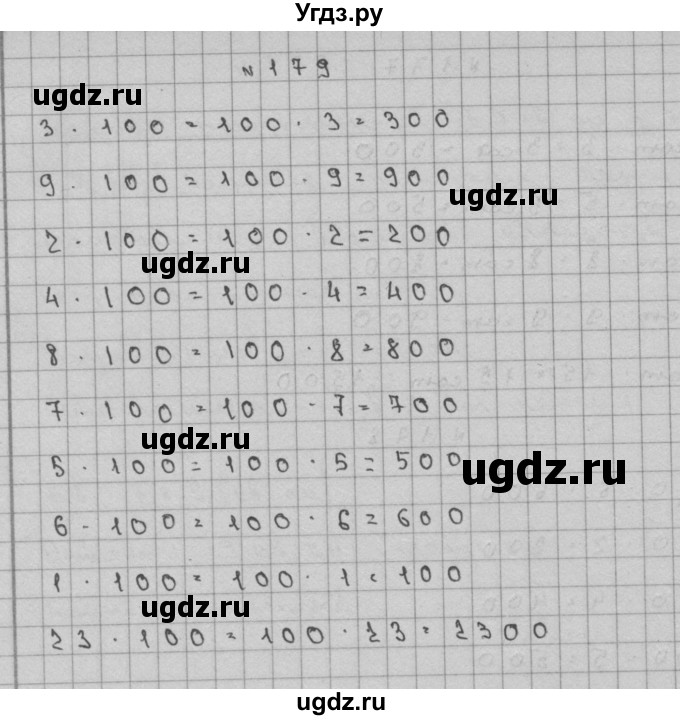 Угдз.ру
№ 179
ugdz.ru
3 · 100 = 100 · 3 = 300
9 · 100 = 100 · 9 = 900
ugdz.ru
2 · 100 = 100 · 2 = 200
ugdz.ru
4 · 100 = 100 · 4 = 400
8 · 100 = 100 · 8 = 800
7 · 100 = 100 · 7 = 700
ugdz.ru
5 · 100 = 100 · 5 = 500
ugdz.ru
6 · 100 = 100 · 6 = 600
1 · 100 = 100 · 1 = 100
ugdz.ru
23 · 100 = 100 · 23 = 2300
ugdz.ru